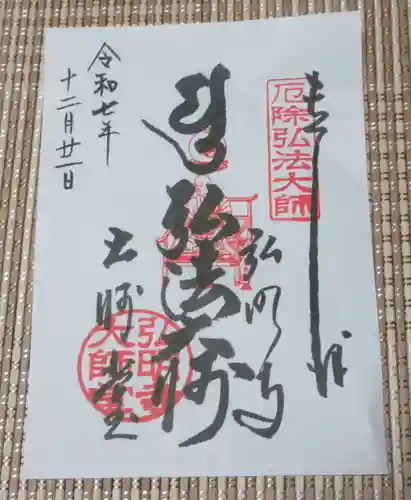 奉拝
厄除弘法大師
弘法大師
弘明寺
大師堂
弘明寺
大師堂
令和七年
十二月廿一日